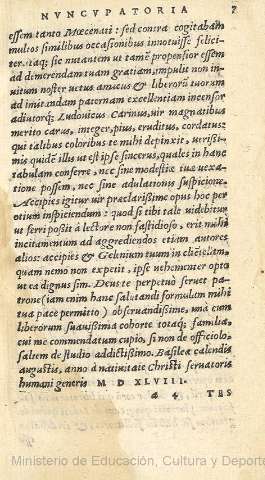 NVNCVPATORIA 7
essem tanto Mœcenati: sed contra cogitabam
multos similibus occasionibus innotuisse felici-
ter. itaq; sic nutantem ut tamē propensior essem
ad demerendam tuam gratiam, impulit non in-
uitum noster uetus amicus & liberorū tuorum
ad imitandam paternam excellentiam incensor
adiutorq; Ludouicus Carinus, uir magnatibus
merito carus, integer, pius, eruditus, cordatus
qui talibus coloribus te mihi depinxit, uerissi-
mis quidē illis ut est ipse sincerus, quales in hanc
tabulam conferre, nec sine modestiæ tuæ uexa-
tione possem, nec sine adulationis suspicione.
Accipies igitur uir præclarissime opus hoc per
otium inspiciendum: quod si tibi tale uidebitur
ut ferri possit à lectore non fastidioso, erit mihi
incitamentum ad aggrediendos etiam autores
alios: accipies & Gelenium tuum in clientelam,
quam nemo non expetit, ipse uehementer opto
ut ea dignus sim. Deus te perpetuò seruet pa-
trone (iam enim hanc salutandi formulam mihi
tua pace permitto) obseruandissime, unà cum
liberorum suauissima cohorte totaq; familia,
cui me commendatum cupio, si non de officiolo,
saltem de studio addictissimo. Basileæ calendis
augustis, anno à natiuitate Christi seruatoris
humani generis M D XLVIII.
a 4 TES
Ministerio de Educación, Cultura y Deporte